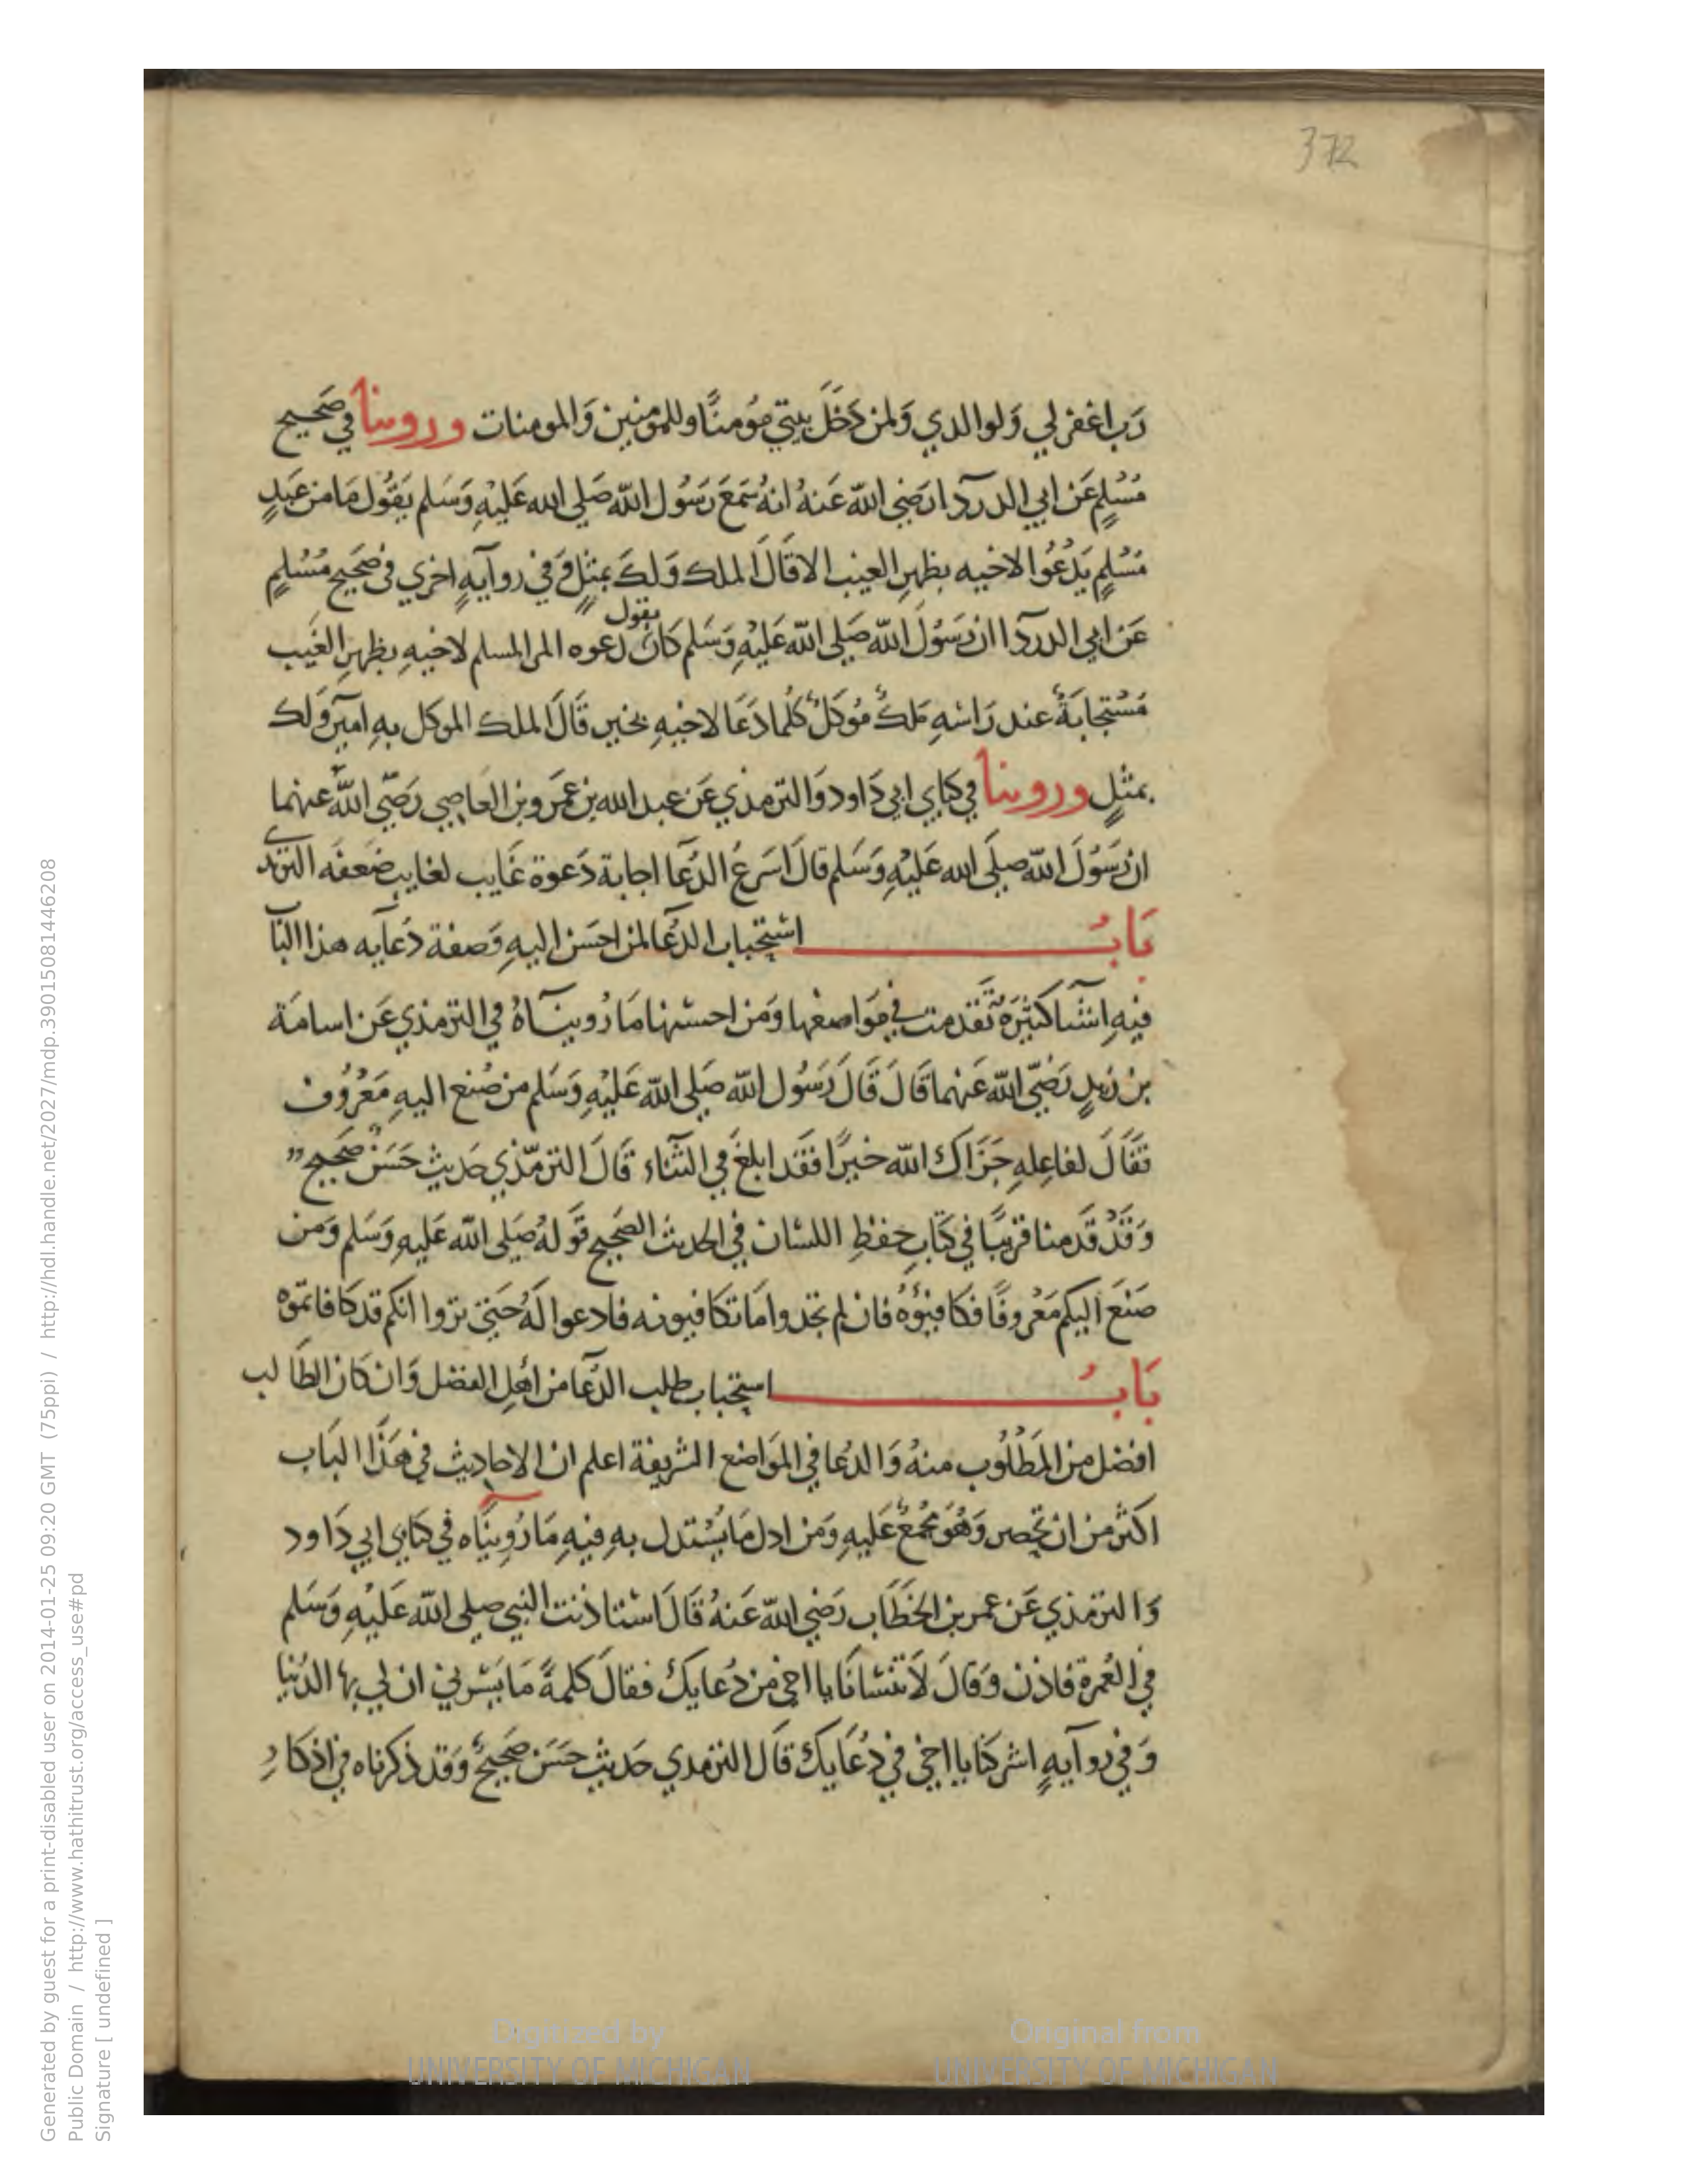 372
رَب اغفر لي وَلوالدي وَلمن دَخَلَ بيتي مُومنًا وللمومنين وَالمومنات وروينا في صَحيح
مُسْلِمٍ عَن ابي الدردآ رَضي الله عَنهُ انهُ سَمعَ رَسُول الله صَلي الله عَليْهِ وَسَلم يَقُول مَا من عَبدٍ
مُسْلِمٍ يَدْعُوا لاخيه بظهرِ الغيب الا قَالَ الملك وَلكَ بمثلٍ وَفي روآيهٍ اخري في صَحيح مُسْلمٍ
عَن ابي الدردآ ان رَسُولَ الله صَلي الله عَليْهِ وَسَلم كَانَ يقول دَعوه المرا لمسلم لاخيهِ بظهرِ الغَيب
مُسْتجابَةٌ عند رَاسهِ مَلكٌ مُوَكلٌ كُلما دَعَا لاخيهِ بخير قَالَ الملك الموكل بهِ امين وَلك
بمثلٍ وروينا في كتابي ابي دَاود وَالترمذي عَن عبد الله بن عَمرو بن العَاصي رَضّي الله عنهما
ان رَسُولَ الله صلَي الله عَليْهِ وَسَلم قالَ اسَرعُ الدُعآ اجابة دَعوة غَايب لغايب ضَعفَه الترمذي
بَابُ استحباب الدُعآ لمن احسَن اليهِ وَصفة دُعآيه هذا البَا
فيهِ اشيآ كثيَرة تَقَدمت في مَواضعها وَمن احسنها مَا رُويناهُ في الترمذي عَن اسامَة
بن زيدٍ رَضّي الله عَنهما قَالَ قَالَ رَسُول الله صَلي الله عَليْهِ وَسَلم من صُنع اليهِ مَعْرُوف
فقَالَ لفاعِلهِ جَزَاك الله خيرًا فقَد ابلغَ في الثنآء قَالَ الترمّذي حَديث حَسَن صَحيح
وَقَدْ قَدمنا قريبًا في كتابِ حفظِ اللسَان في الحديث الصَحيح قَولهُ صَلي الله عَليهِ وَسَلم وَمن
صَنعَ اليكم مَعْرُوفًا فكافيؤهُ فان لم تجدوا مَا تكافيونه فادعوا لَهُ حَتي تروا انكم قد كافاتموه
بَابُ استحباب طلب الدُعآ من اهْلِ الفضل وَان كانَ الطَالب
افضل من المَطْلُوب منهُ وَالدعُا في المَوَاضع الشريفة اعلم ان الاحاديث في هَذَا البَاب
اكثر من ان تحصر وَهُوَ مجمعٌ عَليهِ وَمن ادل مَا يُسْتدل بهِ فيهِ مَا رُوينَاه في كتابي ابي دَاود
وَالترمذي عَن عمر بن الخطَاب رَضي الله عَنهُ قَالَ استاذنت النبي صلي الله عَليْهِ وَسَلم
في العُمرة فاذن وَقالَ لاَ تنْسَانا يا اخي من دُعايكَ فقالَ كلمةً مَا يسُرني ان لي بها الدُنيا
وَفي روآيهٍ اشركنا يا اخي في دُعَايكَ قَالَ الترمدي حَديث حَسَن صَحيحٌ وَقد ذكرناه في اذكارِ
Digitized by
UNIVERSITY OF MICHIGAN
Original from
UNIVERSITY OF MICHIGAN
Generated by guest for a print-disabled user on 2014-01-25 09:20 GMT (75ppi) / http://hdl.handle.net/2027/mdp.39015081446208
Public Domain / http://www.hathitrust.org/access_use#pd
Signature [ undefined ]